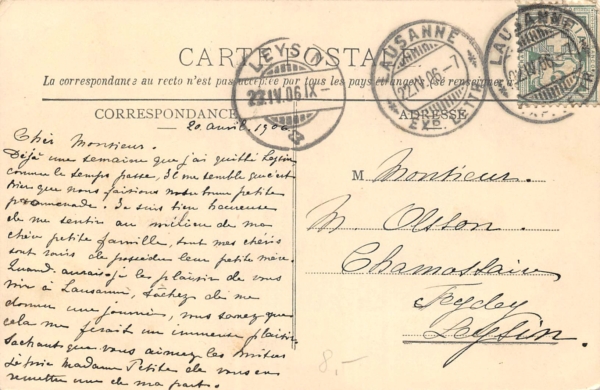 CARTE POSTALE
La correspondance au recto n'est pas acceptée par tous les pays étrangers (se renseigner à la
CORRESPONDANCE
ADRESSE
LEYSIN
22.IV.06.IX-
LAUSANNE
22.IV.06.-7
EXP. LETTR.
LAUSANNE
22.IV.06.-7
20 avril. 1906
Cher Monsieur.
Déjà une semaine que j'ai quitté Leysin
comme le temps passe, Il me semble que c'est
hier que nous faisions notre bonne petite
promenade. Je suis bien heureuse
de me sentir au milieu de ma
chère petite famille, tout mes chéris
sont ravis de posséder leur petite mère.
Quand aurais-je le plaisir de vous
voir à Lausanne, tâchez de me
donner une journée, vous savez que
cela me ferait un immense plaisir
Sachant que vous aimez les
Je prie Madame de vous en
remettre une de ma part.
M Monsieur.
M. Olsson.
Chamossaire
Feydey
Leysin.
8,-